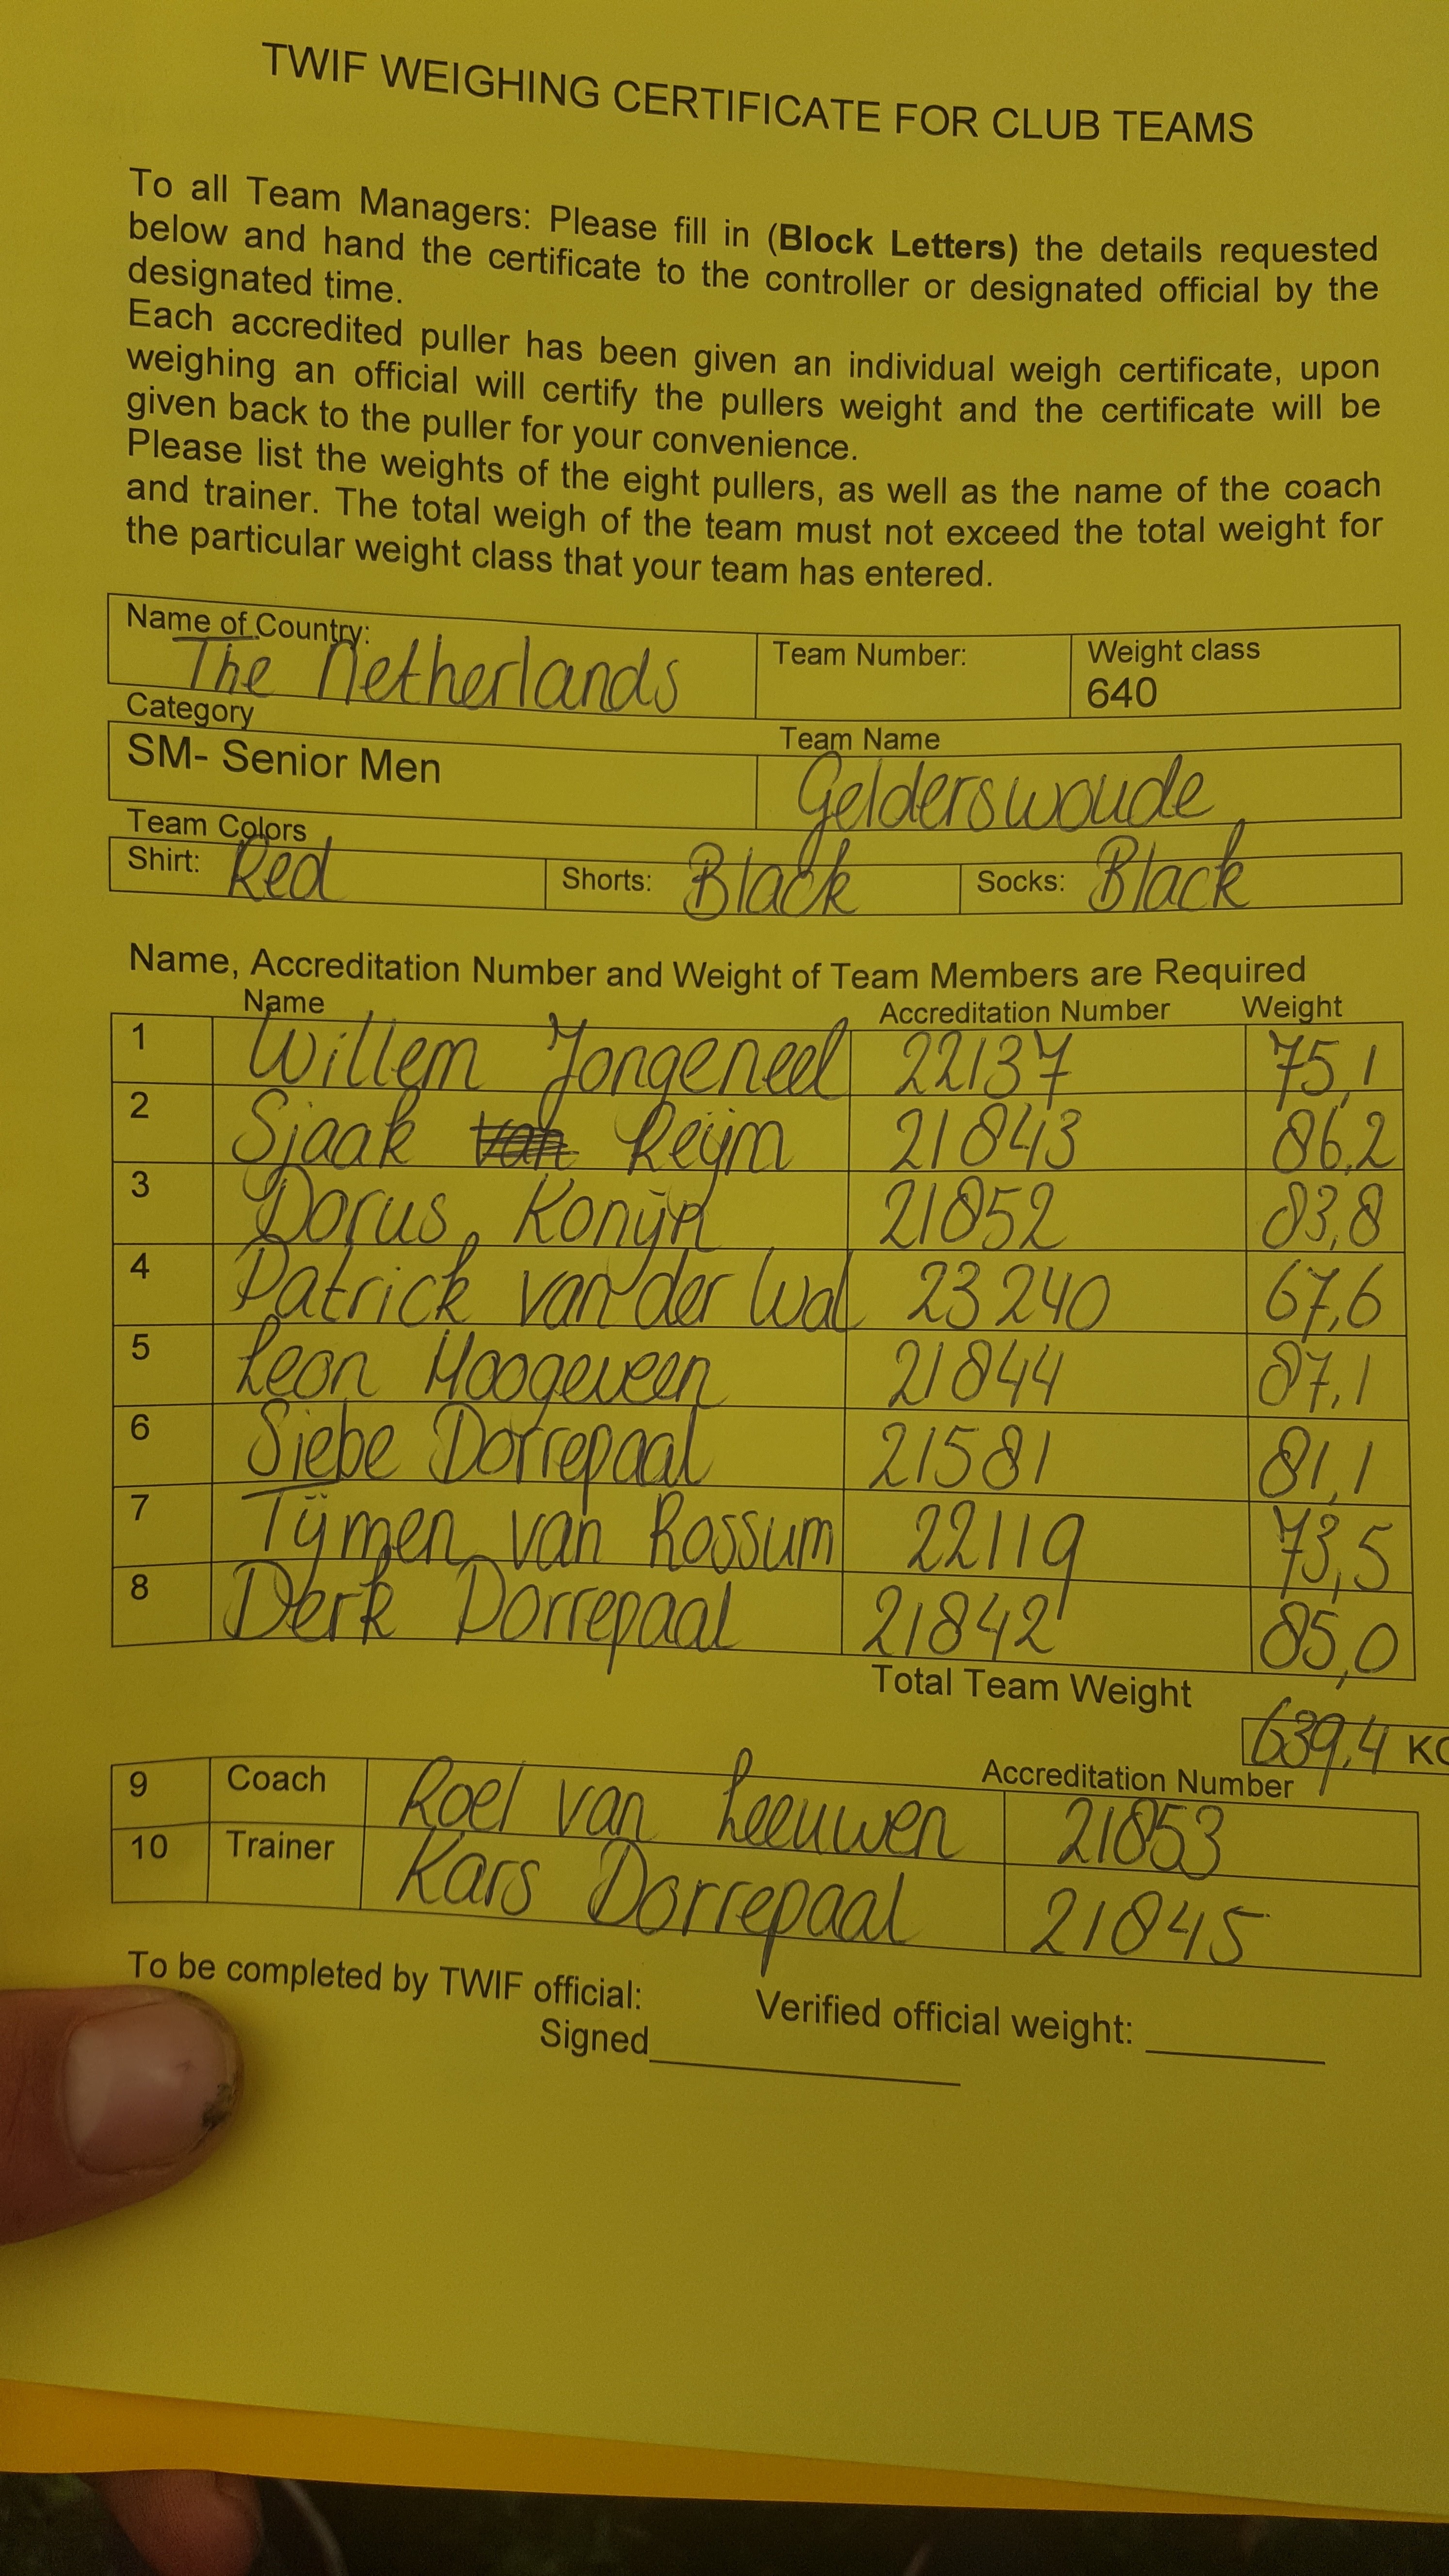 TWIF WEIGHING CERTIFICATE FOR CLUB TEAMS
To all Team Managers: Please fill in (Block Letters) the details requested
below and hand the certificate to the controller or designated official by the
designated time.
Each accredited puller has been given an individual weigh certificate, upon
weighing an official will certify the pullers weight and the certificate will be
given back to the puller for your convenience.
Please list the weights of the eight pullers, as well as the name of the coach
and trainer. The total weigh of the team must not exceed the total weight for
the particular weight class that your team has entered.
Name of Country: The Netherlands Team Number: Weight class 640
Category Team Name
SM- Senior Men Gelderswoude
Team Colors
Shirt: Red Shorts: Black Socks: Black
Name, Accreditation Number and Weight of Team Members are Required
Name Accreditation Number Weight
1 Willem Jongeneel 22137 75,1
2 Sjaak van Reijm 21843 86,2
3 Dorus Konijn 21852 83,8
4 Patrick van der Wal 23240 67,6
5 Leon Hoogeveen 21844 87,1
6 Siebe Dorrepaal 21581 81,1
7 Tijmen van Rossum 22119 73,5
8 Derk Dorrepaal 21842 85,0
Total Team Weight 639,4 KG
Accreditation Number
9 Coach Roel van Leeuwen 21853
10 Trainer Kars Dorrepaal 21845
To be completed by TWIF official:
Signed Verified official weight: